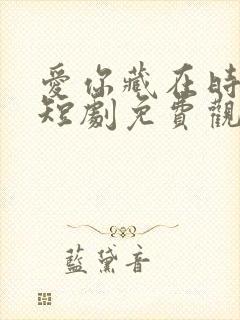 愛你藏在時
短劇免費觀
藍黛音